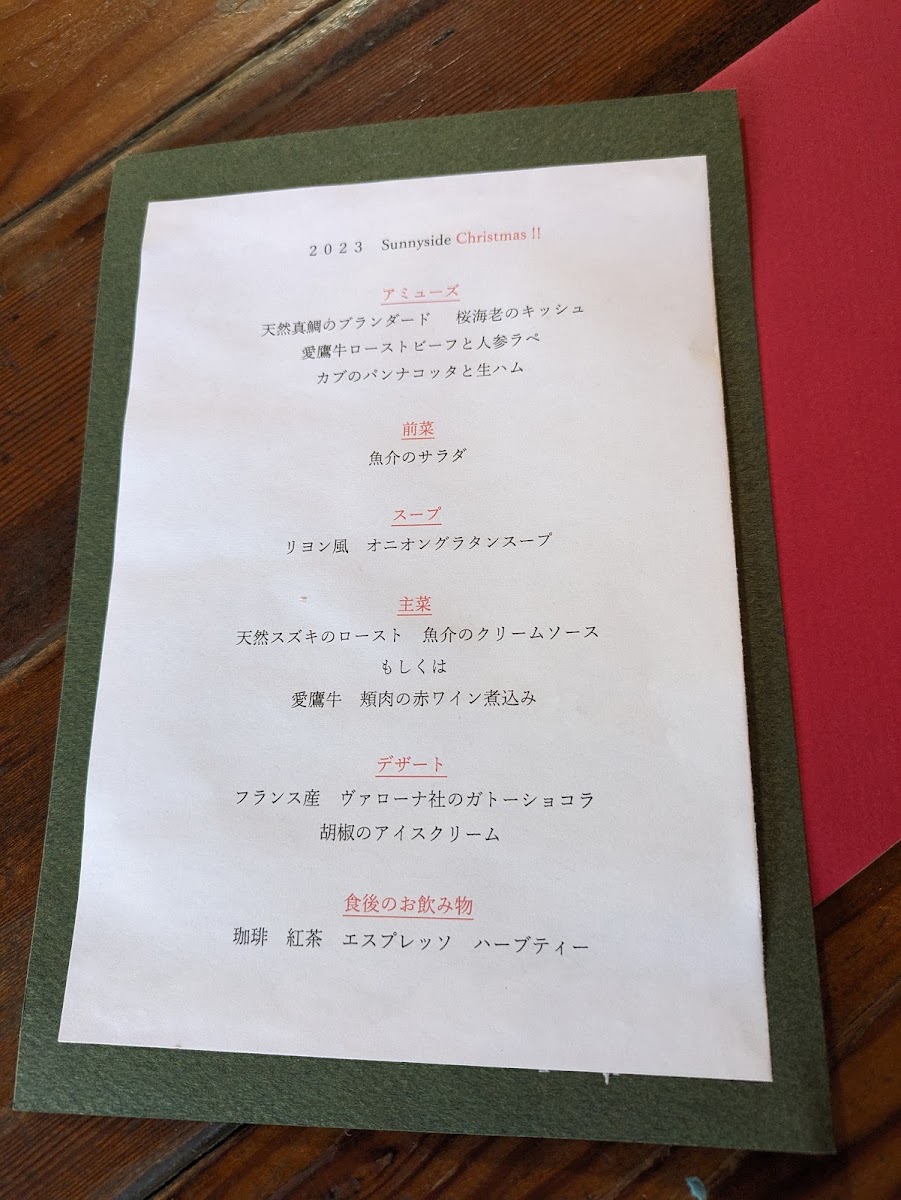 ２０２３　Sunnyside Christmas !!
アミューズ
天然真鯛のブランダード　桜海老のキッシュ
愛鷹牛ローストビーフと人参ラペ
カブのパンナコッタと生ハム
前菜
魚介のサラダ
スープ
リヨン風　オニオングラタンスープ
主菜
天然スズキのロースト　魚介のクリームソース
もしくは
愛鷹牛　頬肉の赤ワイン煮込み
デザート
フランス産　ヴァローナ社のガトーショコラ
胡椒のアイスクリーム
食後のお飲み物
珈琲　紅茶　エスプレッソ　ハーブティー